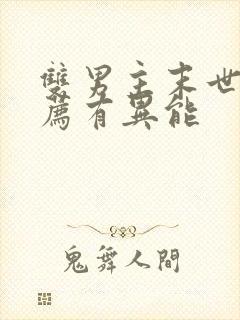 雙男主末世
薦有異能
鬼舞人間